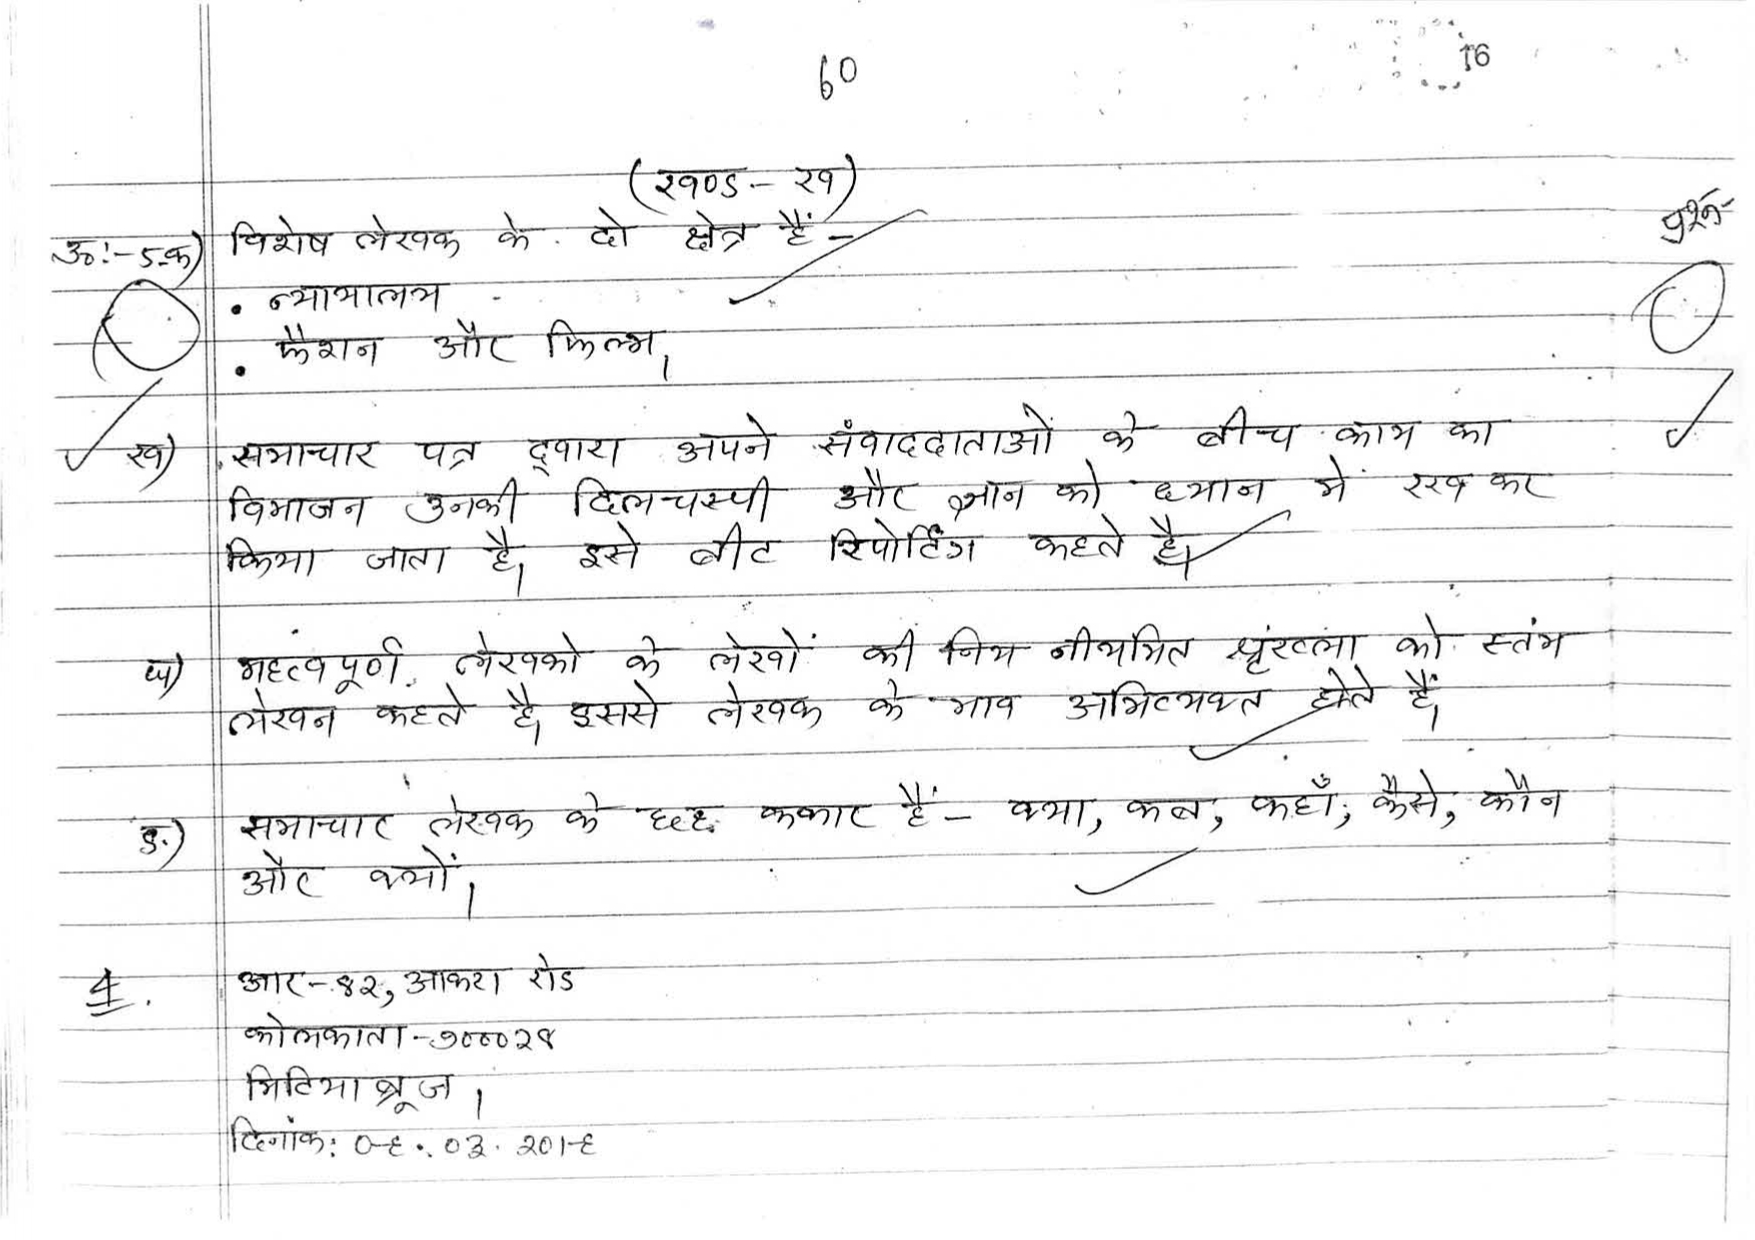 60
16
(खण्ड - ख)
प्रश्न-
उ०:- 5.क) विशेष लेखक के दो क्षेत्र हैं -
• न्यायालय
• फैशन और फिल्म।
ख) समाचार पत्र द्वारा अपने संवाददाताओं के बीच काम का
विभाजन उनकी दिलचस्पी और ज्ञान को ध्यान में रख कर
किया जाता है। इसे बीट रिपोर्टिंग कहते है।
घ) महत्वपूर्ण लेखको के लेखों की निय नीयमित श्रृंखला को स्तंभ
लेखन कहते है। इससे लेखक के भाव अभिव्यक्त होते हैं।
ङ.) समाचार लेखक के छह ककार हैं - क्या, कब, कहाँ, कैसे, कौन
और क्यों।
4. आर-४२, आकरा रोड
कोलकाता-७०००२४
मिटिया ब्रूज।
दिनांक: ०९.०३.२०१९